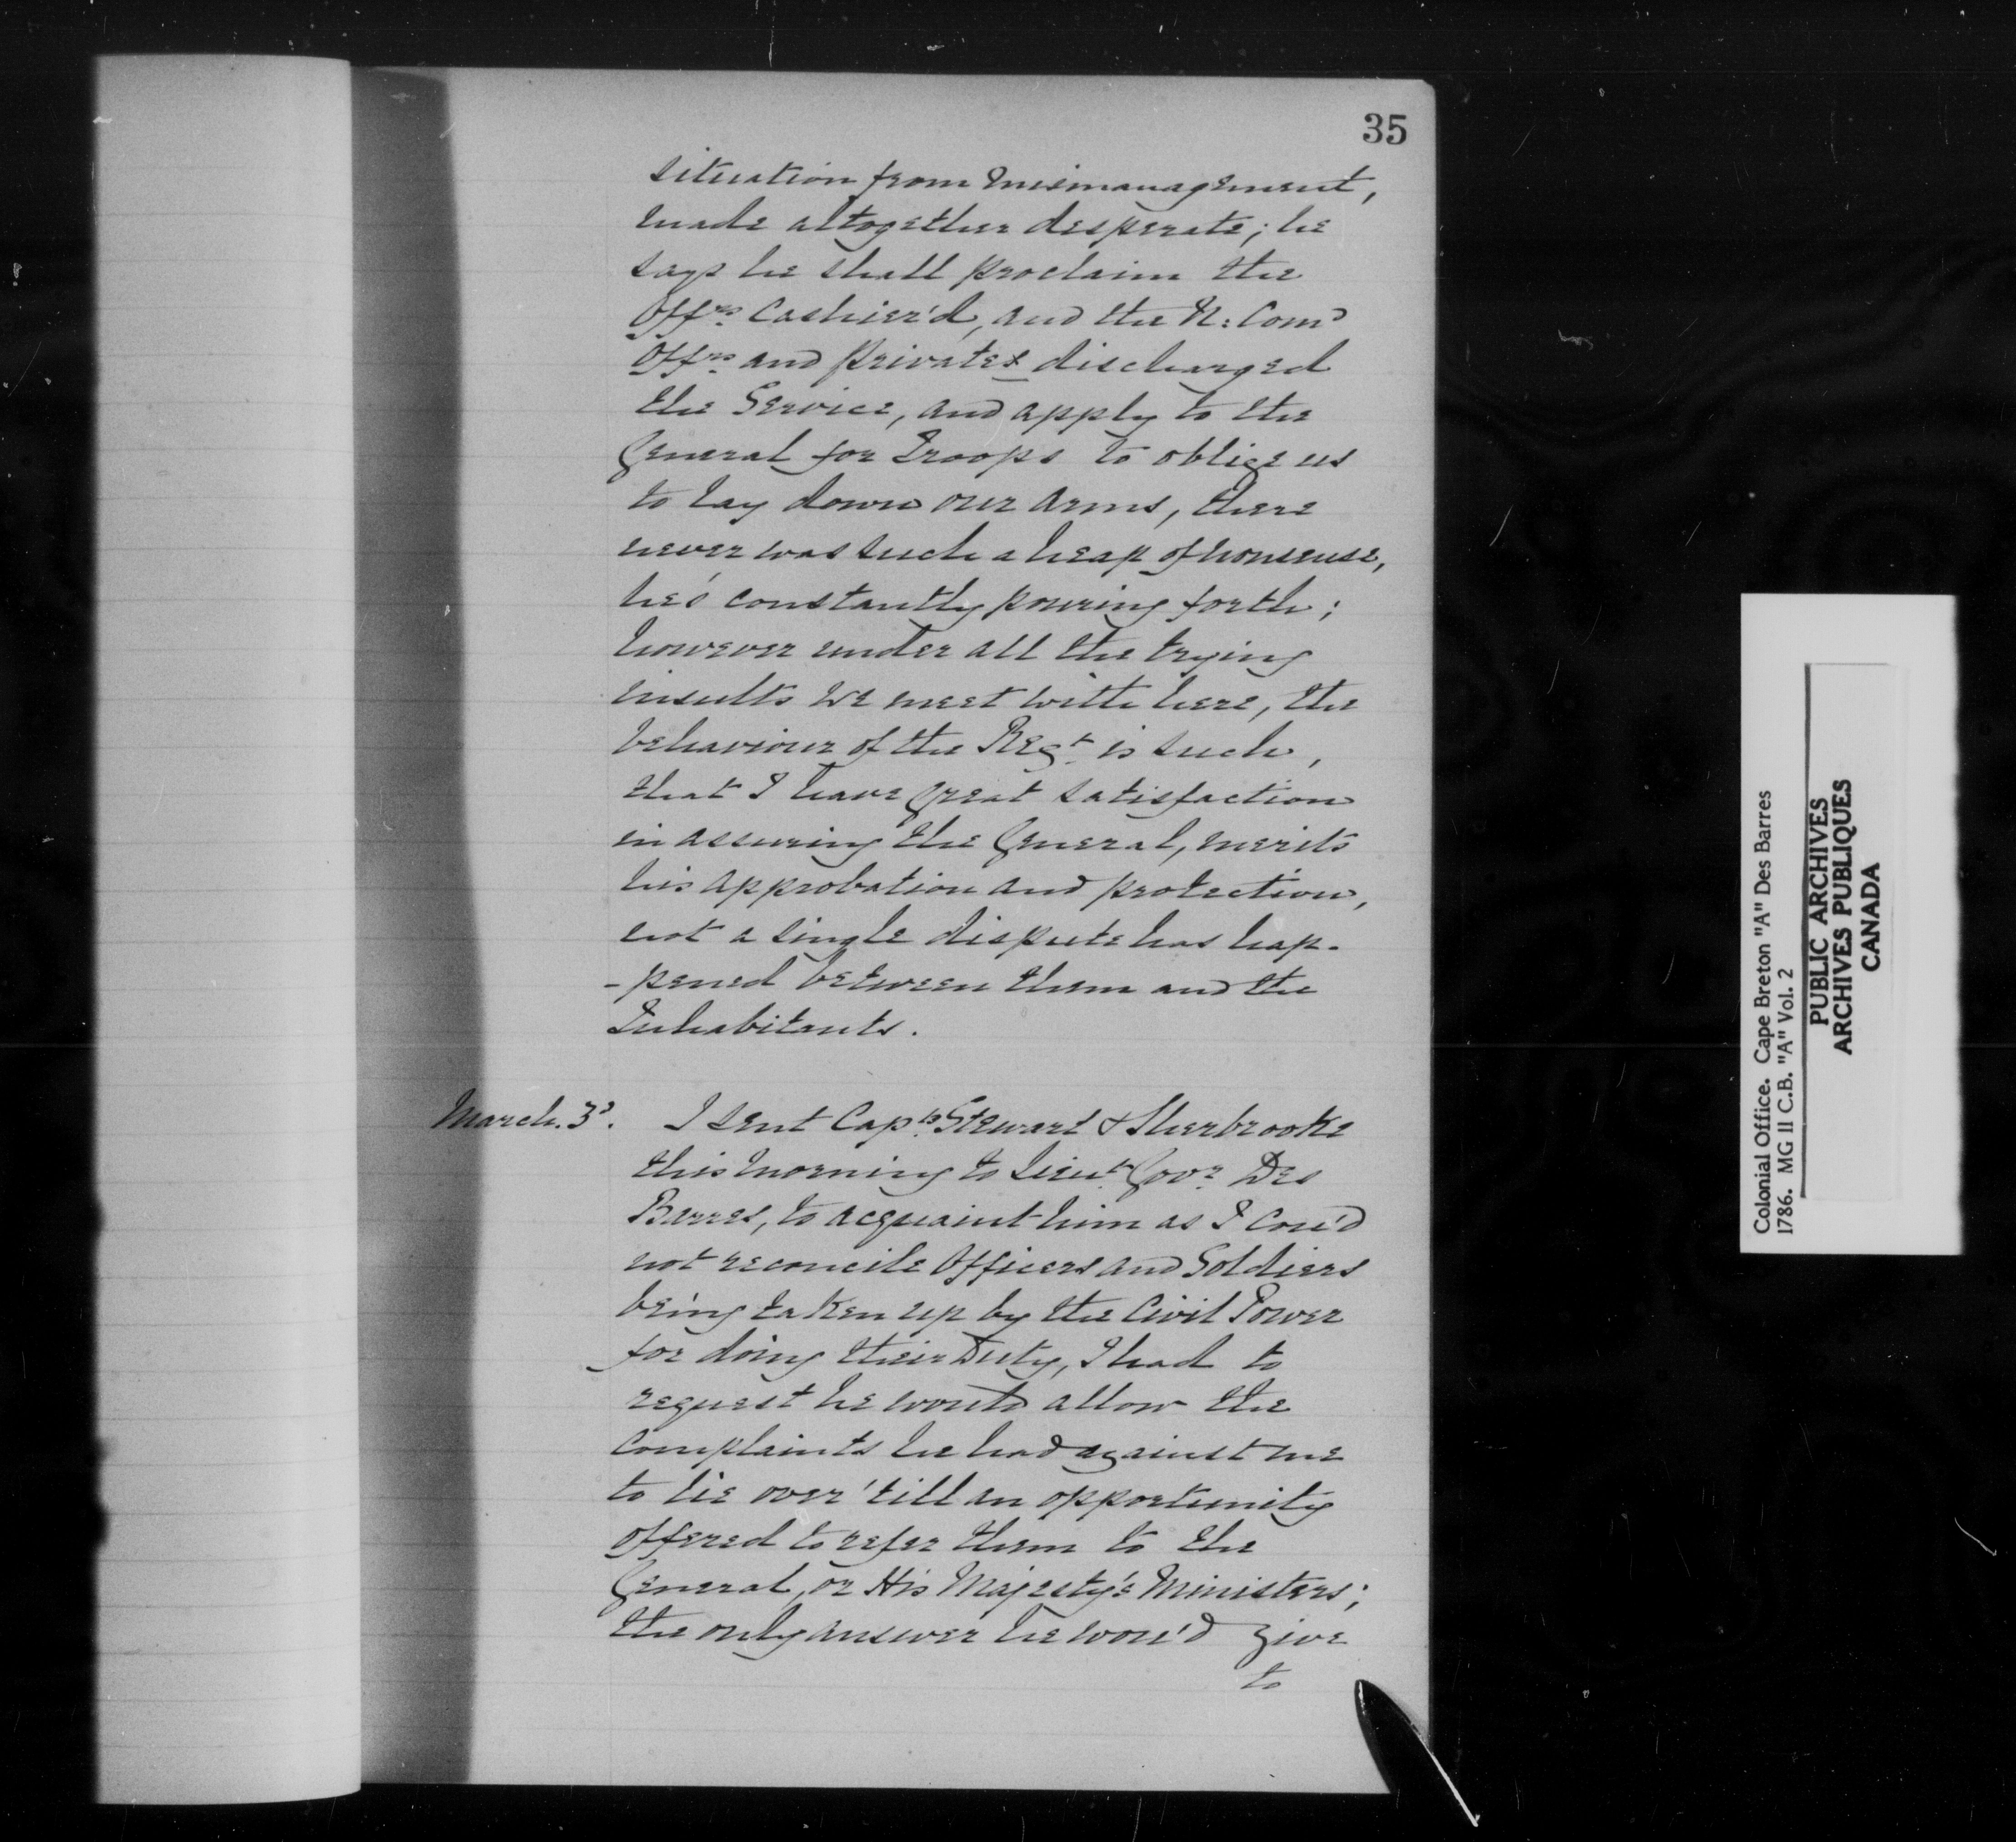 35
situation from mismanagement,
made altogether desperate; he
says he shall proclaim the
Offrs. Cashier'd, and the N: Comd
Offrs. and privates discharged
the Service, and apply to the
General for Troops to oblige us
to lay down our arms, there
never was such a heap of nonsense,
he's constantly pouring forth;
however under all the trying
insults we meet with here, the
behaviour of the Regt. is such,
that I have great satisfaction
in assuring the General, merits
his approbation and protection,
not a single dispute has hap-
-pened between them and the
Inhabitants.
March. 3d. I sent Capts. Stewart & Sherbrooke
this morning to Lieut. Govr. Des
Barres, to acquaint him as I cou'd
not reconcile Officers and Soldiers
being taken up by the Civil Power
for doing their Duty, I had to
request he would allow the
complaints he had against me
to lie over 'till an opportunity
offered to refer them to the
General, or His Majesty's Ministers;
the only answer he wou'd give
to
Colonial Office. Cape Breton "A" Des Barres
1786. MG 11 C.B. "A" Vol. 2
PUBLIC ARCHIVES
ARCHIVES PUBLIQUES
CANADA